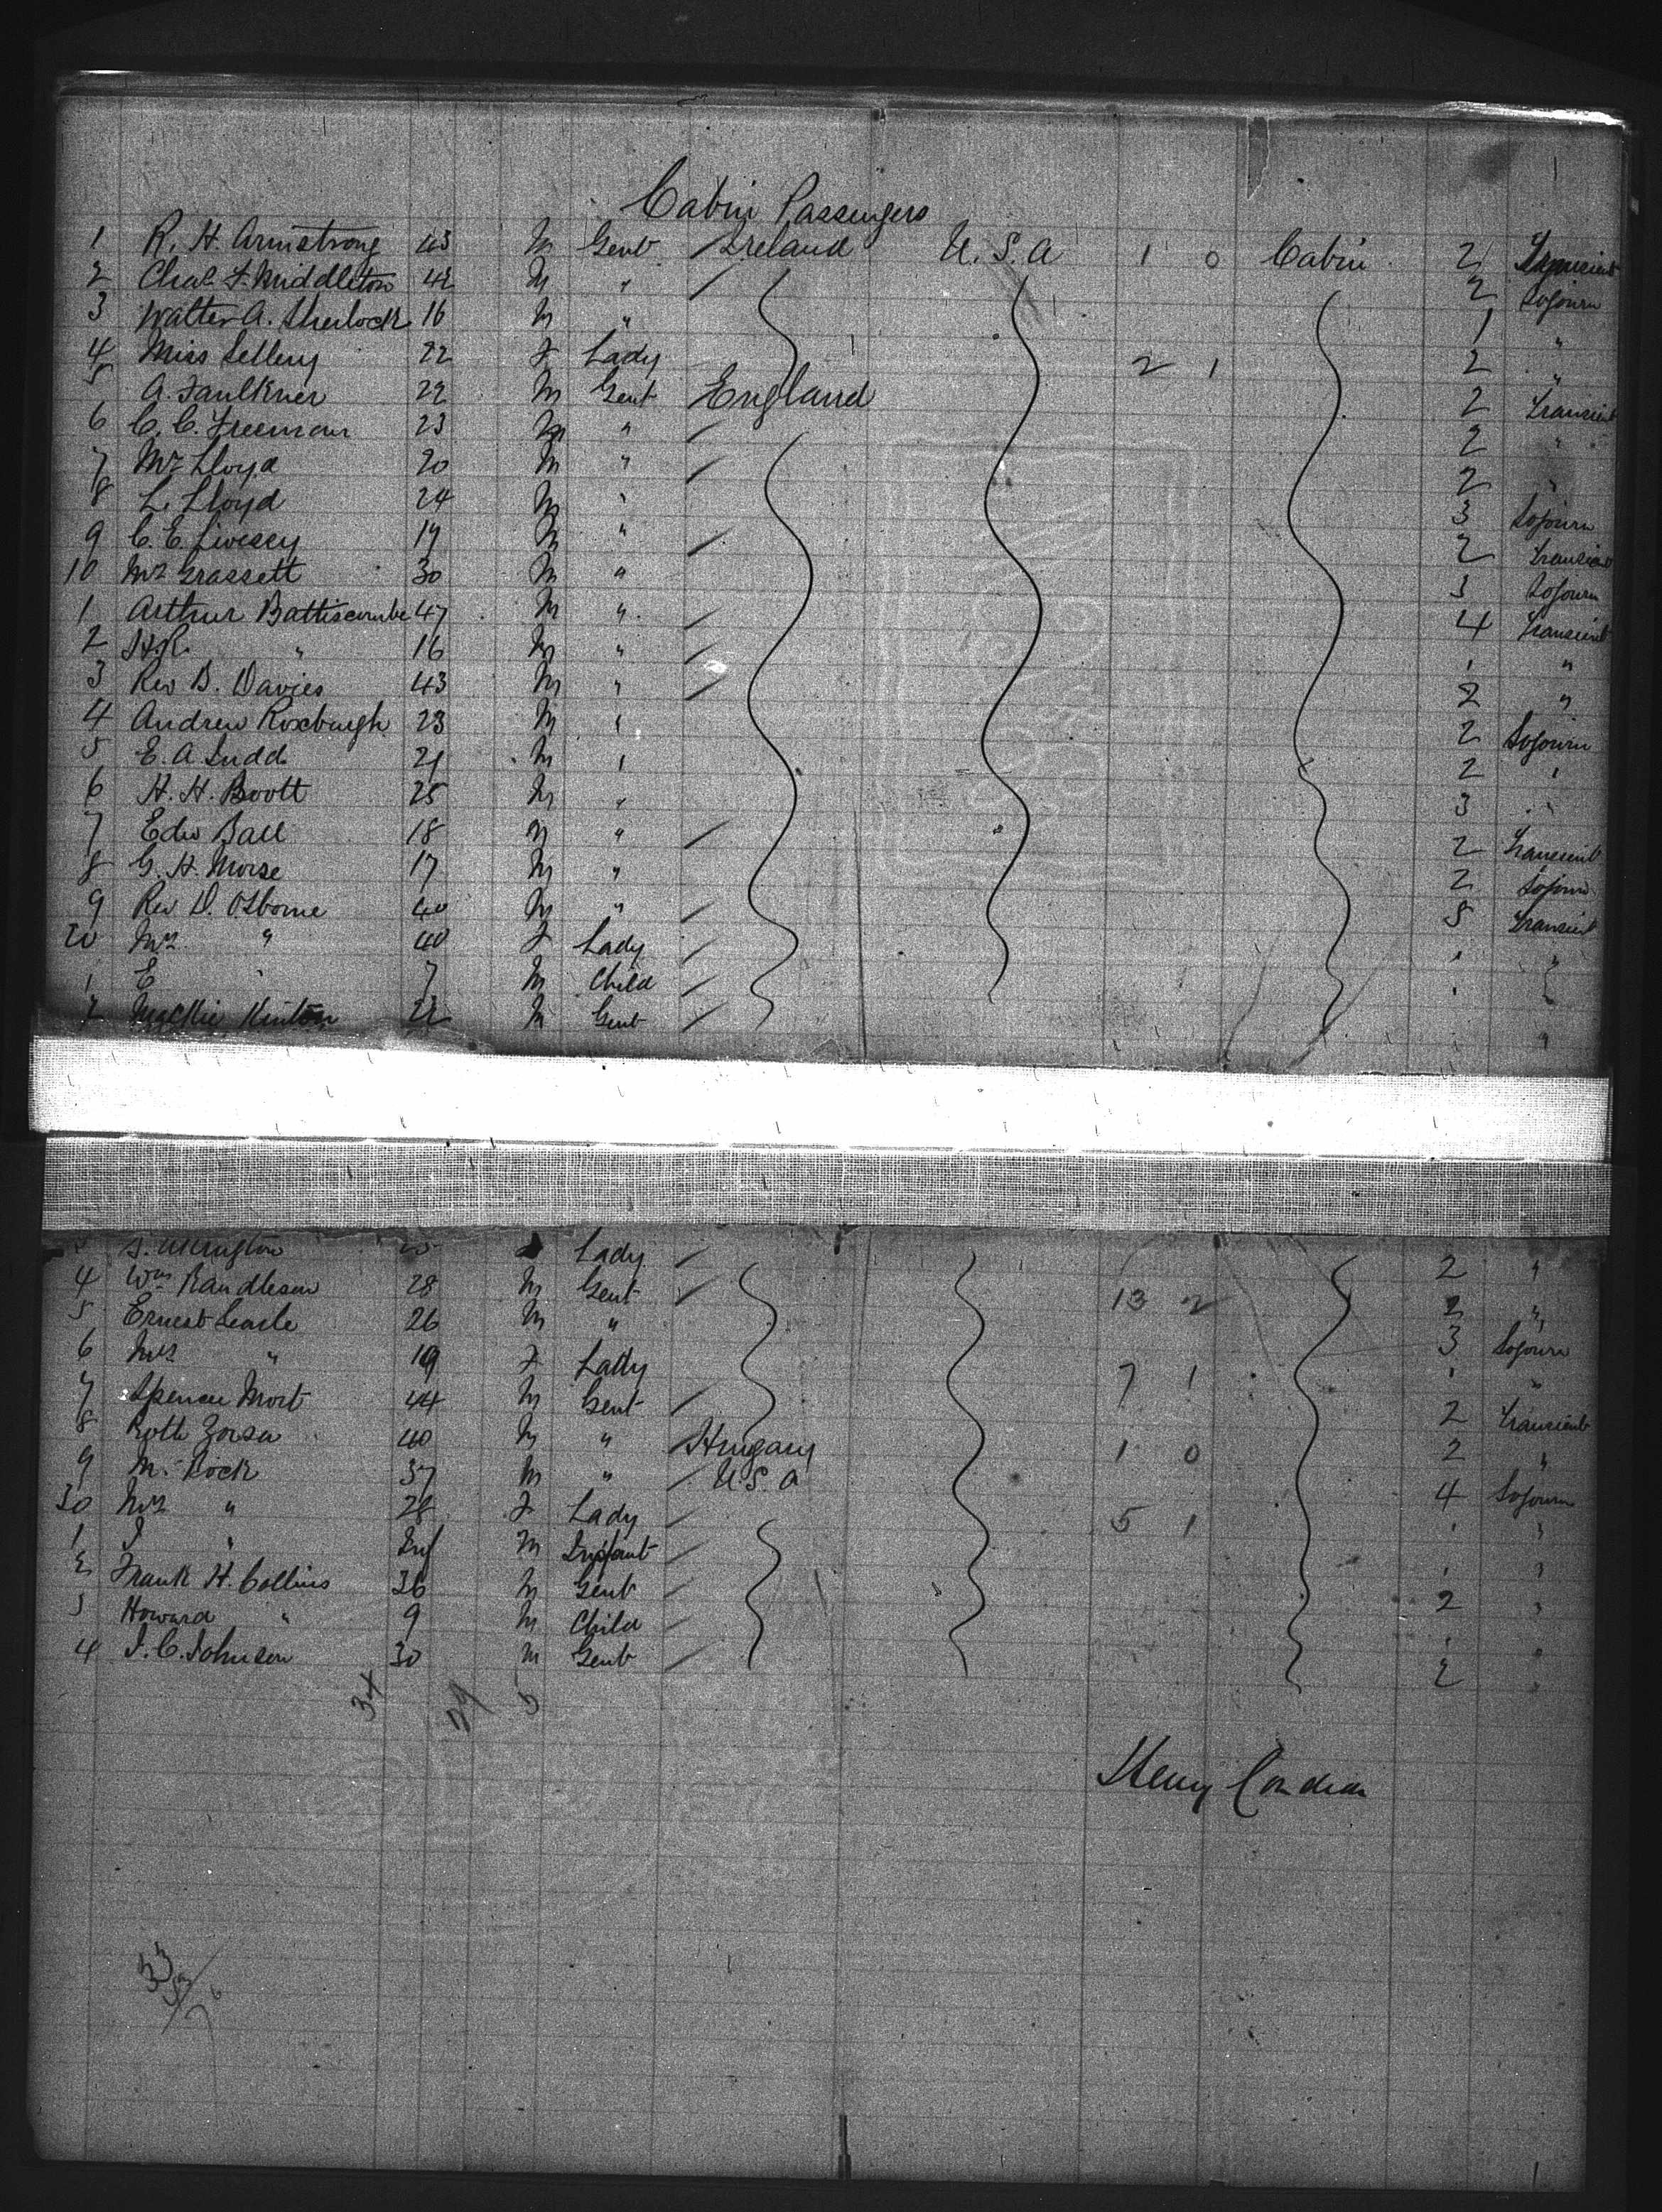 Cabin Passengers
1 R. H. Armstrong 43 M Gent Ireland U.S.A 1 0 Cabin 2 Transient
2 Chas F. Middleton 42 M " 2 Sojourn
3 Walter A. Sherlock 16 M " 1 "
4 Miss Sellery 22 F Lady 2 1 2 "
5 A. Faulkner 22 M Gent England 2 Transient
6 C. C. Freeman 23 M " 2 "
7 Mr Lloyd 20 M " 2 "
8 L. Lloyd 24 M " 3 Sojourn
9 C. E. Livesey 19 M " 2 Transient
10 Mr Grassett 30 M " 3 Sojourn
1 Arthur Battiscombe 47 M " 4 Transient
2 H.R. " 16 M " " "
3 Rev D. Davies 43 M " 2 "
4 Andrew Roxburgh 23 M " 2 Sojourn
5 E. A. Judd 21 M " 2 "
6 H. H. Boott 25 M " 3 "
7 Edw Ball 18 M " 2 Transient
8 G. H. Morse 17 M " 2 Sojourn
9 Rev D. Osborne 40 M " 5 Transient
20 Mrs " 40 F Lady " "
1 E " 7 M Child " "
2 Mackie Hinton 22 M Gent " "
Lady 2 "
4 Wm Randleson 28 M Gent 13 2 2 "
5 Ernest Searle 26 M " 3 Sojourn
6 Mrs " 19 F Lady 7 1 " "
7 Spencer Mort 44 M Gent 2 Transient
8 Roth 40 M " Hungary 1 0 2 "
9 M. Rock 37 M " U.S.A 4 Sojourn
30 Mrs " 28 F Lady 5 1 " "
1 J " Inf M Infant " "
2 Frank H. Collins 36 M Gent 2 "
3 Howard " 9 M Child " "
4 J. C. Johnson 30 M Gent 2 "
34 29 5
Henry
33